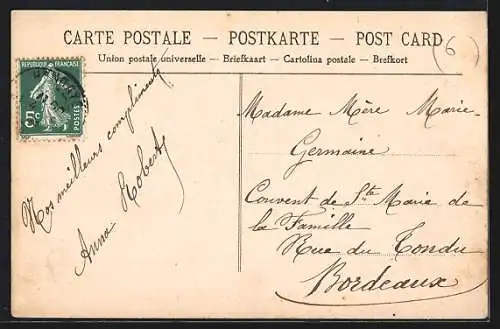 CARTE POSTALE — POSTKARTE — POST CARD
Union postale universelle – Briefkaart – Cartolina postale – Brefkort
6
RÉPUBLIQUE FRANÇAISE
5c
POSTES
Nos meilleurs compliments
Anna Robert
Madame Mère Marie-
Germaine
Couvent de Ste Marie de
la Famille
Rue du Tondu
Bordeaux